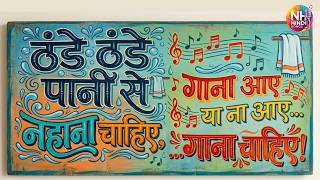 NH
HINDI
ठंडे ठंडे
पानी से
नहाना चाहिए,
गाना आए
या ना आए...
...गाना चाहिए!